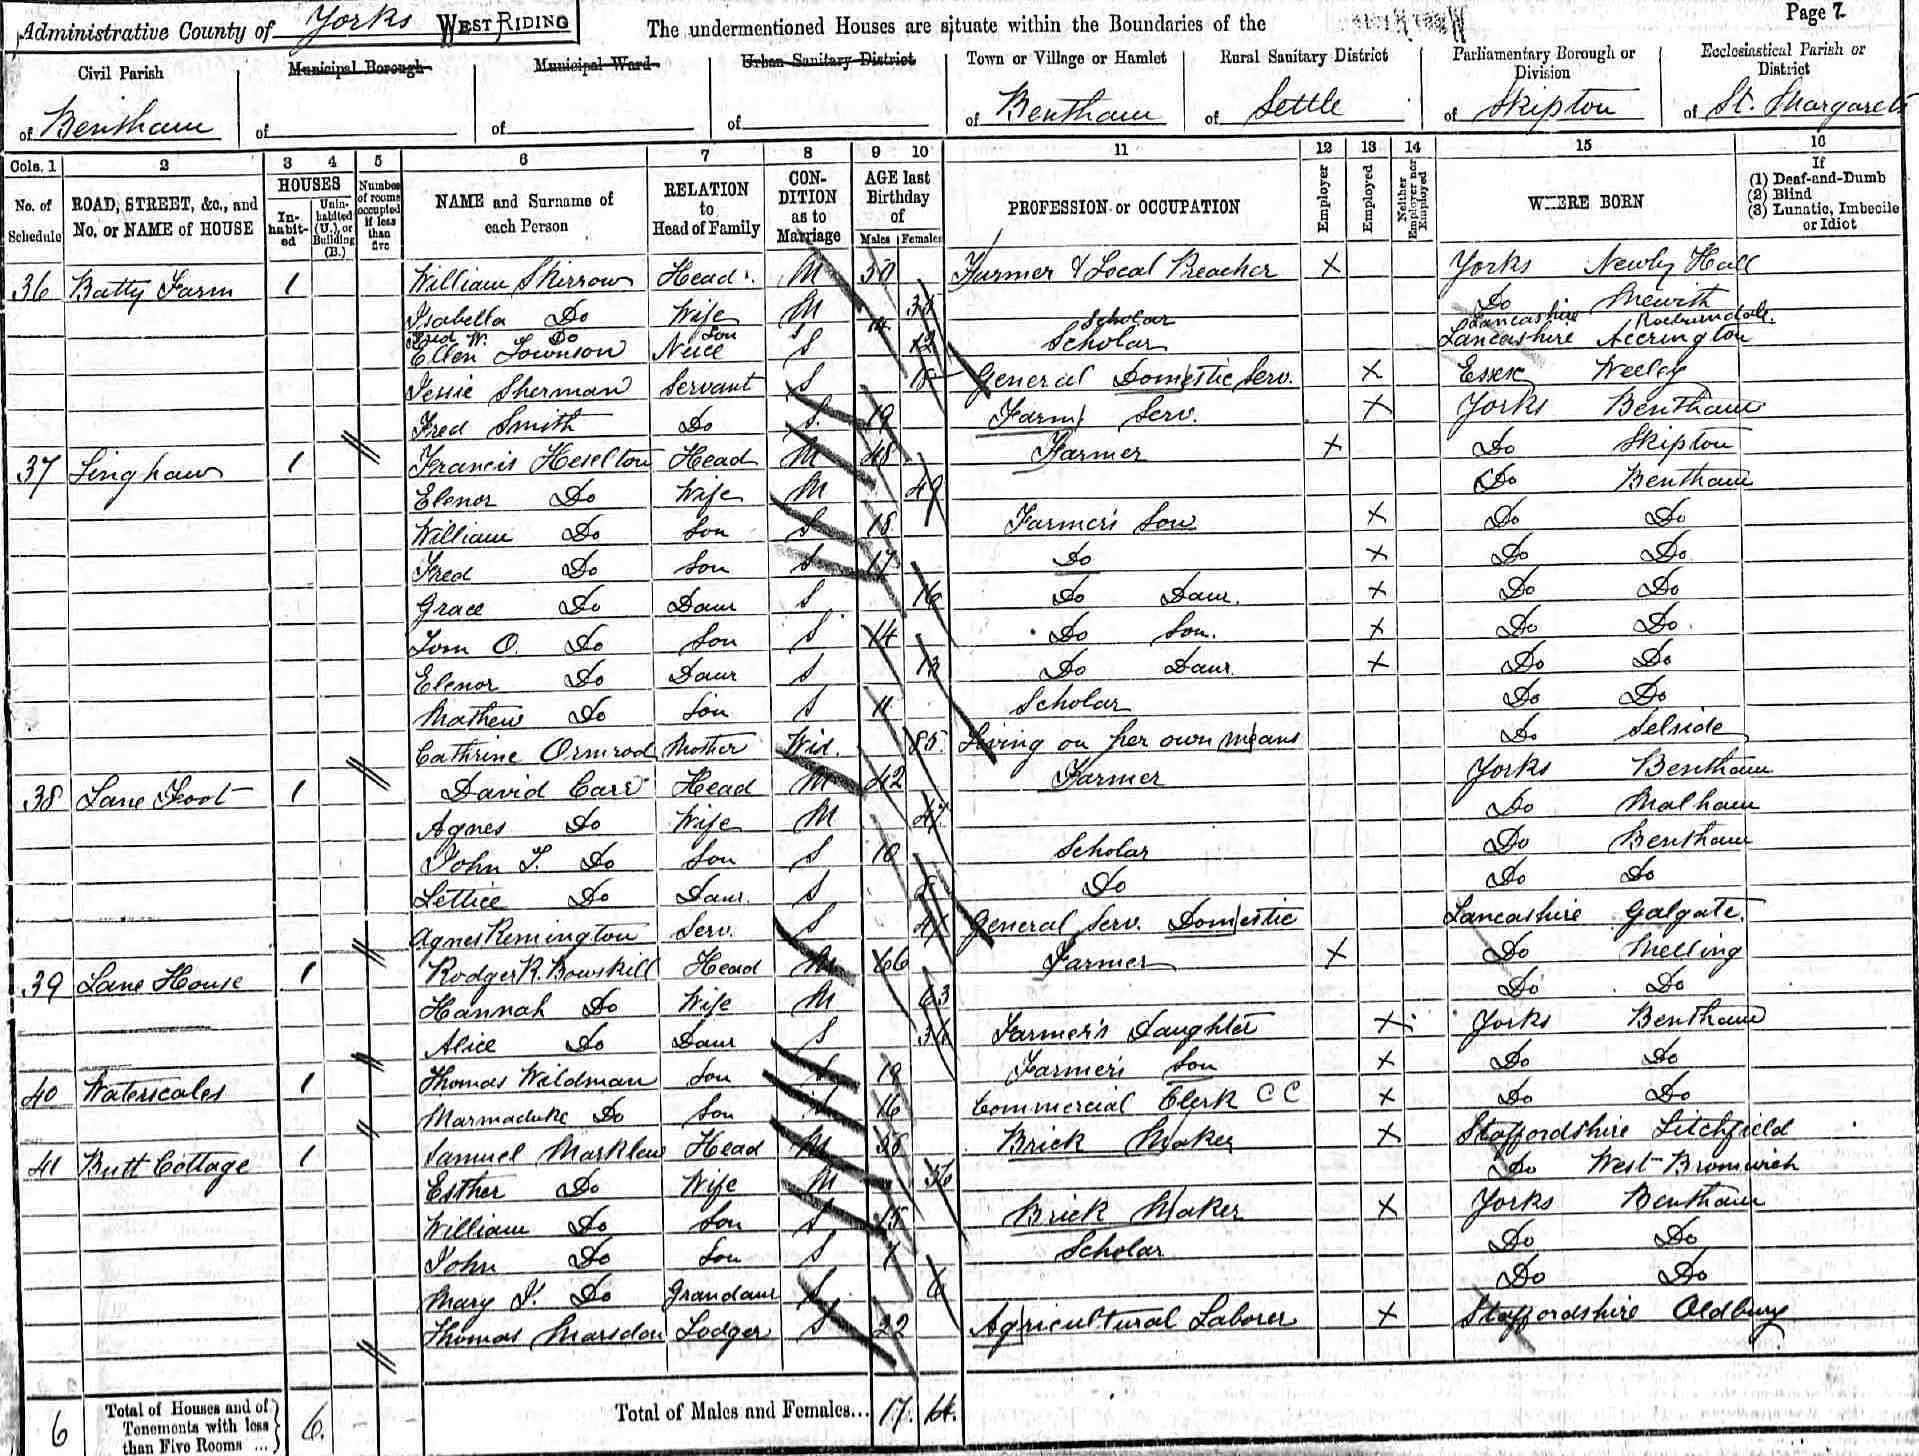 Administrative County of Yorks WEST RIDING The undermentioned Houses are situate within the Boundaries of the Page 7
Civil Parish Municipal Borough Municipal Ward Urban Sanitary District Town or Village or Hamlet Rural Sanitary District Parliamentary Borough or Division Ecclesiastical Parish or District
of Bentham of of of of Bentham of Settle of Skipton of St. Margarets
Cols. 1 2 3 4 5 6 7 8 9 10 11 12 13 14 15 16
No. of Schedule ROAD, STREET, &c., and No. or NAME of HOUSE HOUSES Inhabited Uninhabited (U.), or Building (B.) Number of rooms occupied if less than five NAME and Surname of each Person RELATION to Head of Family CONDITION as to Marriage AGE last Birthday of Males Females PROFESSION or OCCUPATION Employer Employed Neither Employer nor Employed WHERE BORN If (1) Deaf-and-Dumb (2) Blind (3) Lunatic, Imbecile or Idiot
36 Batty Farm 1 William Skirrow Head M 30 Farmer & Local Preacher X Yorks Newby Hall
Isabella Do Wife M 35 Do Mewith
Fred W. Do Son 14 Scholar Lancashire Roeburndale
Ellen Townson Neice S 12 Scholar Lancashire Accrington
Jessie Sherman Servant S 18 General Domestic Serv. X Essex Weeley
Fred Smith Do S. 19 Farm Serv. X Yorks Bentham
37 Linghaw 1 Francis Heselton Head M 48 Farmer X Do Skipton
Elenor Do Wife M 49 Do Bentham
William Do Son S 18 Farmer's Son X Do Do
Fred Do Son S 17 Do X Do Do
Grace Do Daur S 16 Do Daur. X Do Do
Tom O. Do Son S 14 Do Son. X Do Do
Elenor Do Daur S 13 Do Daur. X Do Do
Mathew Do Son S 11 Scholar Do Do
Cathrine Ormrod Mother Wid. 85 Living on her own means Do Selside
38 Lane Foot 1 David Carr Head M 42 Farmer Yorks Bentham
Agnes Do Wife M 47 Do Malham
John T. Do Son S 10 Scholar Do Bentham
Lettice Do Daur. S 8 Do Do Do
Agnes Remington Serv. S General Serv. Domestic Lancashire Galgate
39 Lane House 1 Rodger R. Bowskill Head M 66 Farmer X Do Melling
Hannah Do Wife M 63 Do Do
Alice Do Daur S Farmer's Daughter X Yorks Bentham
40 Waterscales 1 Thomas Wildman Son S 19 Farmer's Son X Do Do
Marmaduke Do Son S 16 Commercial Clerk C C X Do Do
41 Butt Cottage 1 Samuel Marklew Head M 58 Brick Maker X Staffordshire Litchfield
Esther Do Wife M 56 Do West-Bromwich
William Do Son S 15 Brick Maker X Yorks Bentham
John Do Son S 7 Scholar Do Do
Mary J. Do Grandaur S 6 Do Do
Thomas Marsdon Lodger S 22 Agricultural Laborer X Staffordshire Oldbury
6 Total of Houses and of Tenements with less than Five Rooms ... 6. Total of Males and Females... 17. 14.